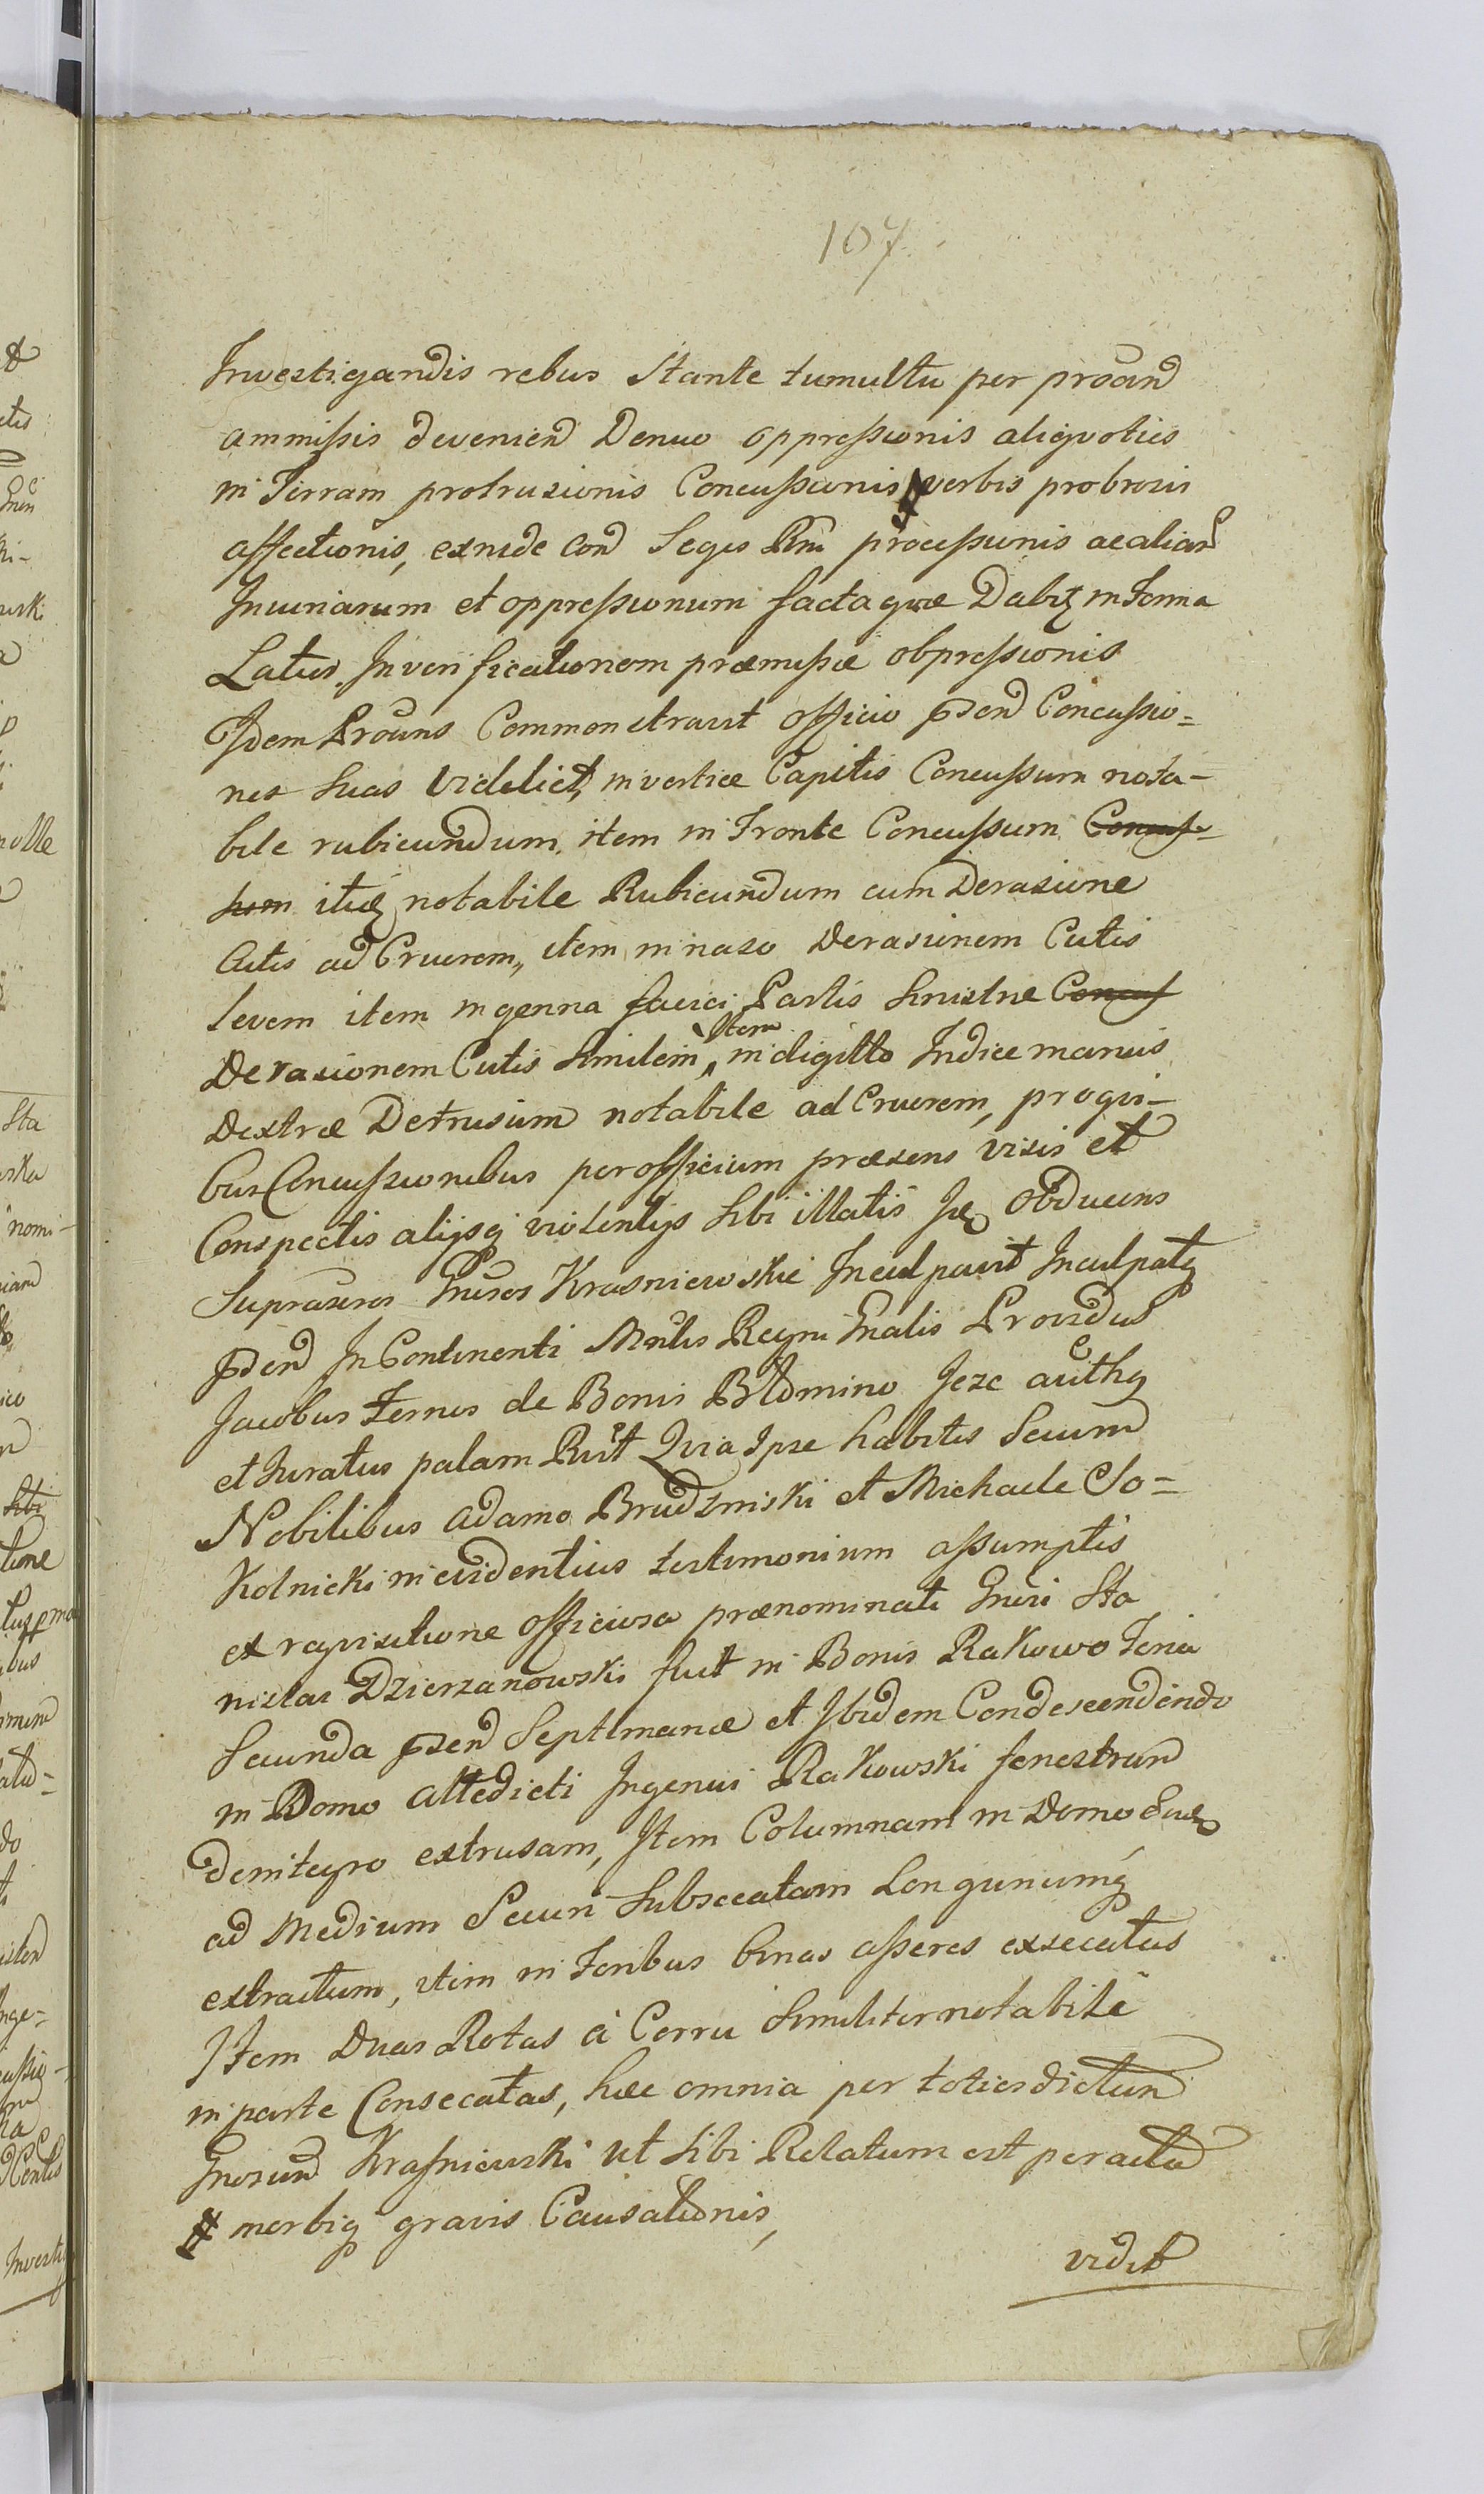 107
Investigandis rebus stante tumultu per proand
ammissis devenien Denuo oppressionis aliquoties
in Terram protrusionis Concussionis # verbis probrosis
affectionis, exnide con Leges Rni processionis ac aliar
Iniuriarum et oppressionum facta quae Dabit in Termina
Latius. In verificationem praemissae obpressionis
Idem Provus Commonstravit officio psen Concussio=
nes suas videlict, in vertice Capitis Concussum nota-
bile rubicundum, item in Fronte Concussum Concus-
sum itidem notabile Rubicundum cum Derasione
Cutis ad Cruorem, item in naso Derasionem Cutis
levem item in genna faciei Partis sinistrae Concus
Derasionem Cutis similem, Item in digitto Indice manus
Dextrae Detrusum notabile ad Cruorem, proqui-
bus Concussionibus per officium praesens visis et
Conspectis alijsq violentijs sibi illatis Ide obducens
Suprascros Gnros Krasniewskie Inculpavit Inculpatq
psen In Continenti Mnlis Regni Gnalis Providus
Jacobus Fernus de Bonis Bldmino Jeze authq
et Juratus palam Rvit Quia Ipse habitis secum
Nobilibus Adamo Brudzniski et Michaele So=
kolnicki in evidentius testimonium assumptis
ex requisitione officiosa praenominati Gnri Sta
nislai Dzierzanowski fuit in Bonis Rakowo Feria
secunda psen Septimanae et Ibidem Condescendendo
in Domo attedicti Ingenui Rakowski fenestram
de integro extrusam, Item Columnam in Domo
ad Medium Securi subsecatam Longuriumq
extractum, item in Foribus binas asseres exsecatas
Item Duas Rotas à Curru similiter notabile
in parte Consecatas, haec omnia per totiesdictum
Gnrosum Krasniewski ut sibi Relatum est peracta
# morbiq gravis Causationis,
vidit